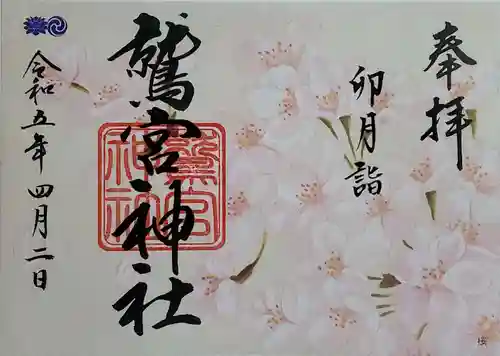 奉拝
卯月詣
鷲宮神社
鷲宮神社
令和五年四月二日
桜